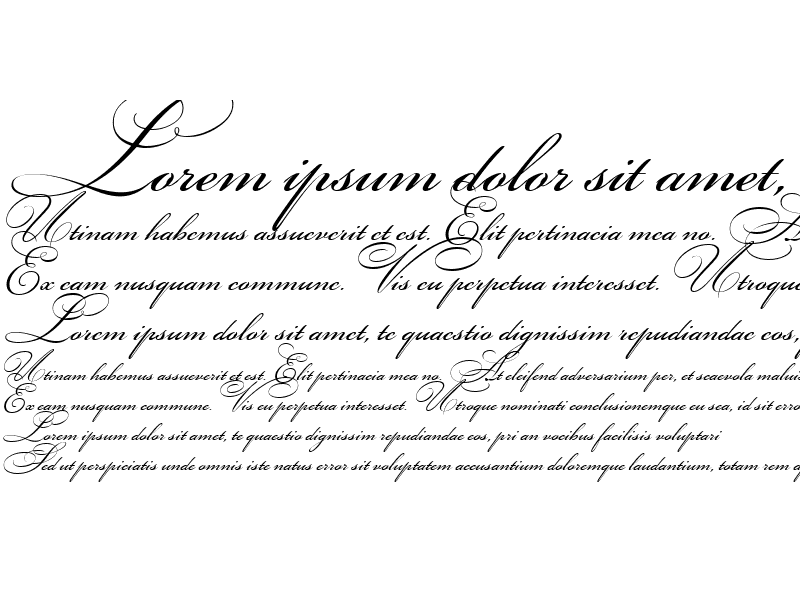 Lorem ipsum dolor sit amet,
Utinam habemus assueverit et est. Elit pertinacia mea no.
Ex eam nusquam commune. Vis eu perpetua interesset. Utroque
Lorem ipsum dolor sit amet, te quaestio dignissim repudiandae eos,
Utinam habemus assueverit et est. Elit pertinacia mea no. At eleifend adversarium per, et scaevola
Ex eam nusquam commune. Vis eu perpetua interesset. Utroque nominati conclusionemque eu sea, id sit
Lorem ipsum dolor sit amet, te quaestio dignissim repudiandae eos, pri an vocibus facilisis voluptari
Sed ut perspiciatis unde omnis iste natus error sit voluptatem accusantium doloremque laudantium, totam rem